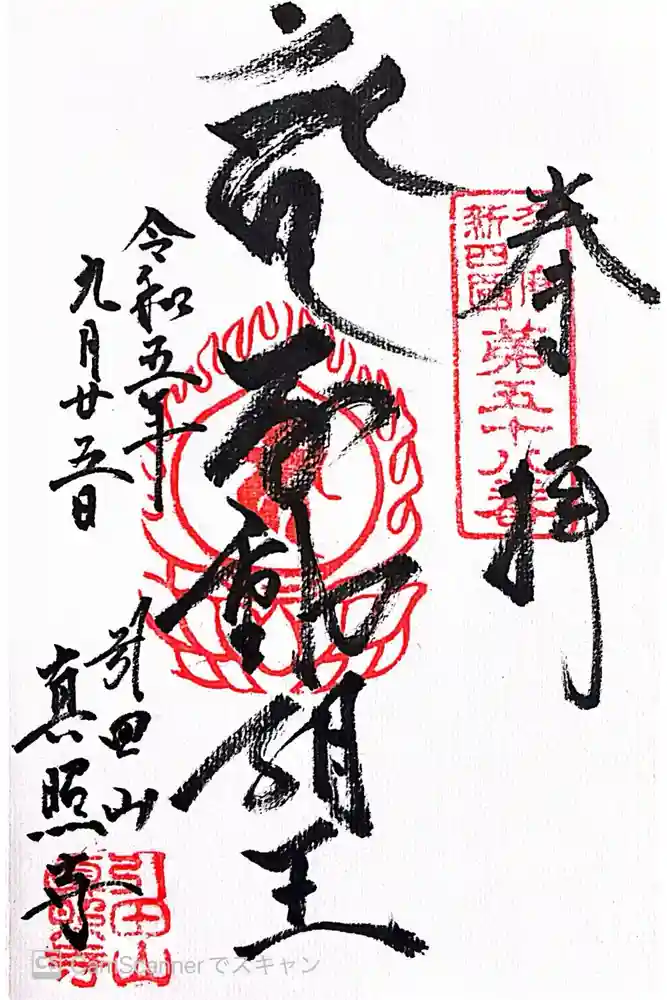 奉拝
新四国
第五十八番
不動明王
令和五年
九月廿五日
引田山
真照寺
引田山
真照寺
CamScannerでスキャン